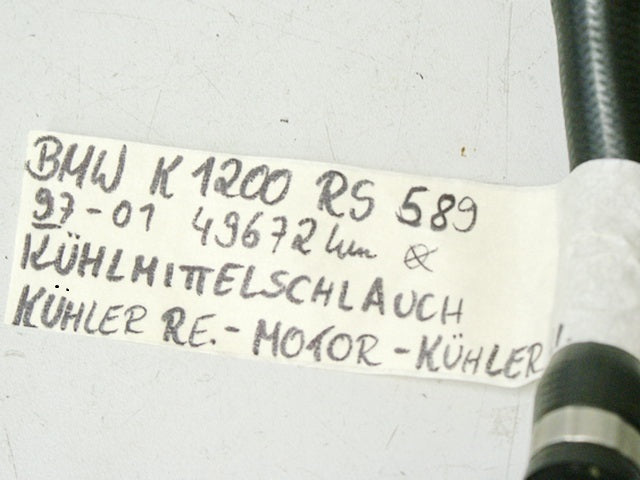 BMW K 1200 RS 589
97-01 49672 km
KÜHLMITTELSCHLAUCH
KÜHLER RE.-MOTOR-KÜHLER